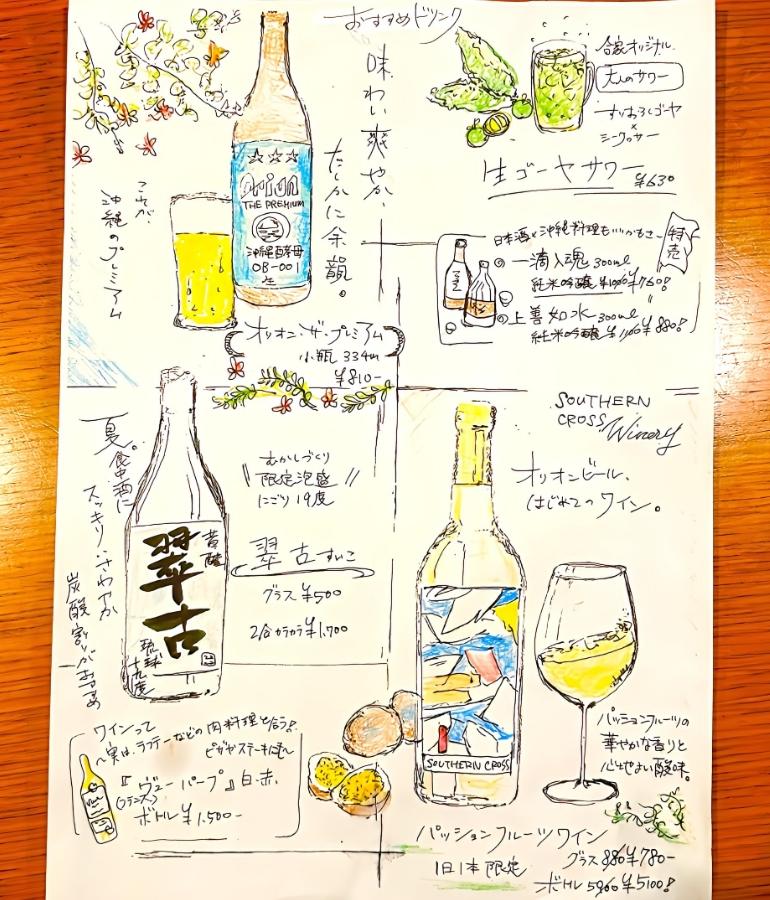 おすすめドリンク
味わい爽やか、
たしかに余韻。
これが、
沖縄のプレミアム
Orion
THE PREMIUM
沖縄酵母
OB-001
オリオン・ザ・プレミアム
小瓶 334ml
¥810-
合家オリジナル
大人のサワー
すりおろしゴーヤ
×
シークヮサー
生ゴーヤサワー
¥630
日本酒×沖縄料理も
特売
一滴入魂 300ml
純米吟醸 ¥760!
上善如水 300ml
純米吟醸 ¥880!
夏。食中酒に
スッキリ・さわやか
炭酸割りがおすすめ
昔醸
翠古
琉球
十九度
むかしづくり
限定泡盛
にごり 19度
翠古 すいこ
グラス ¥500
2合カラカラ ¥1,700
SOUTHERN
CROSS
Winery
オリオンビール、
はじめてのワイン。
SOUTHERN CROSS
パッションフルーツの
華やかな香りと
心地よい酸味。
パッションフルーツワイン
1日1本限定
グラス 880 ¥780-
ボトル 5,900 ¥5100!
ワインって
〜実は、ラフテーなどの肉料理と合う!
ピザやステーキにも〜
『ヴュー パープ』白・赤。
(フランス)
ボトル ¥1,500-